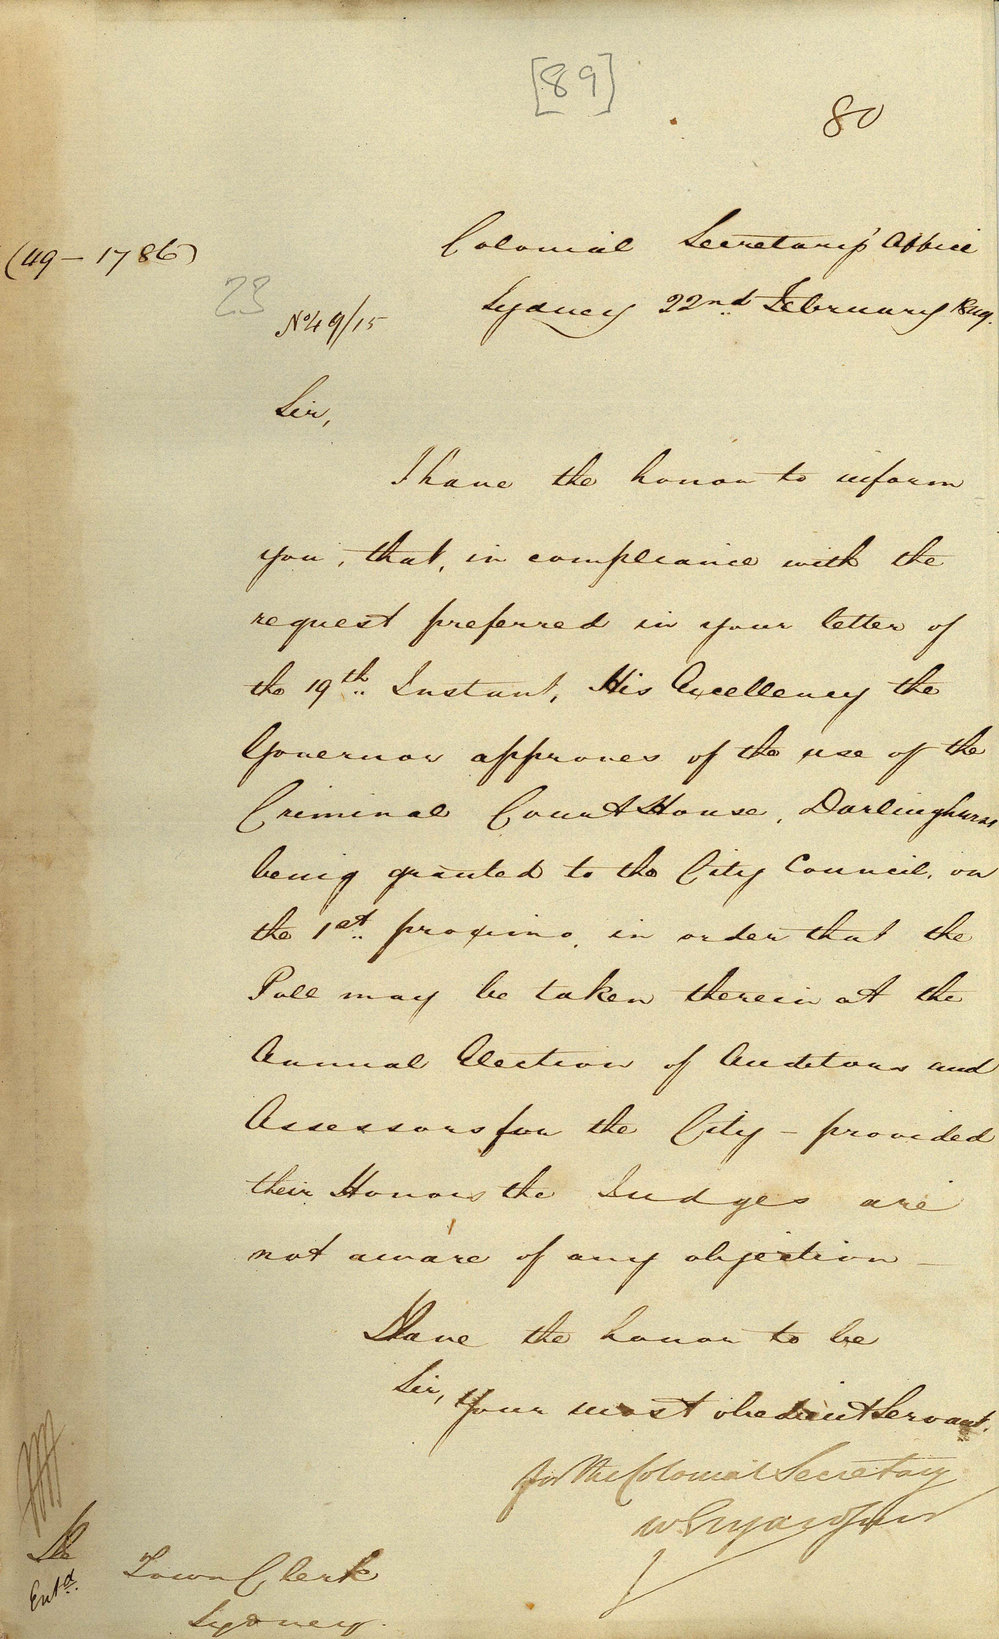 [89]
80
(49-1786)
Colonial Secretary's Office
23
Sydney 22nd February 1849.
No 49/15
Sir,
I have the honor to inform
you, that, in compliance with the
request preferred in your letter of
the 19th Instant, His Excellency the
Governor approves of the use of the
Criminal Court House, Darlinghurst
being granted to the City Council, on
the 1st proximo, in order that the
Poll may be taken therein at the
Annual Election of Auditors and
Assessors for the City – provided
their Honors the Judges are
not aware of any objection –
I have the honor to be
Sir,
Your most obedient Servant.
for the Colonial Secretary
W Elyard Junr
The
Town Clerk
Entd.
Sydney.